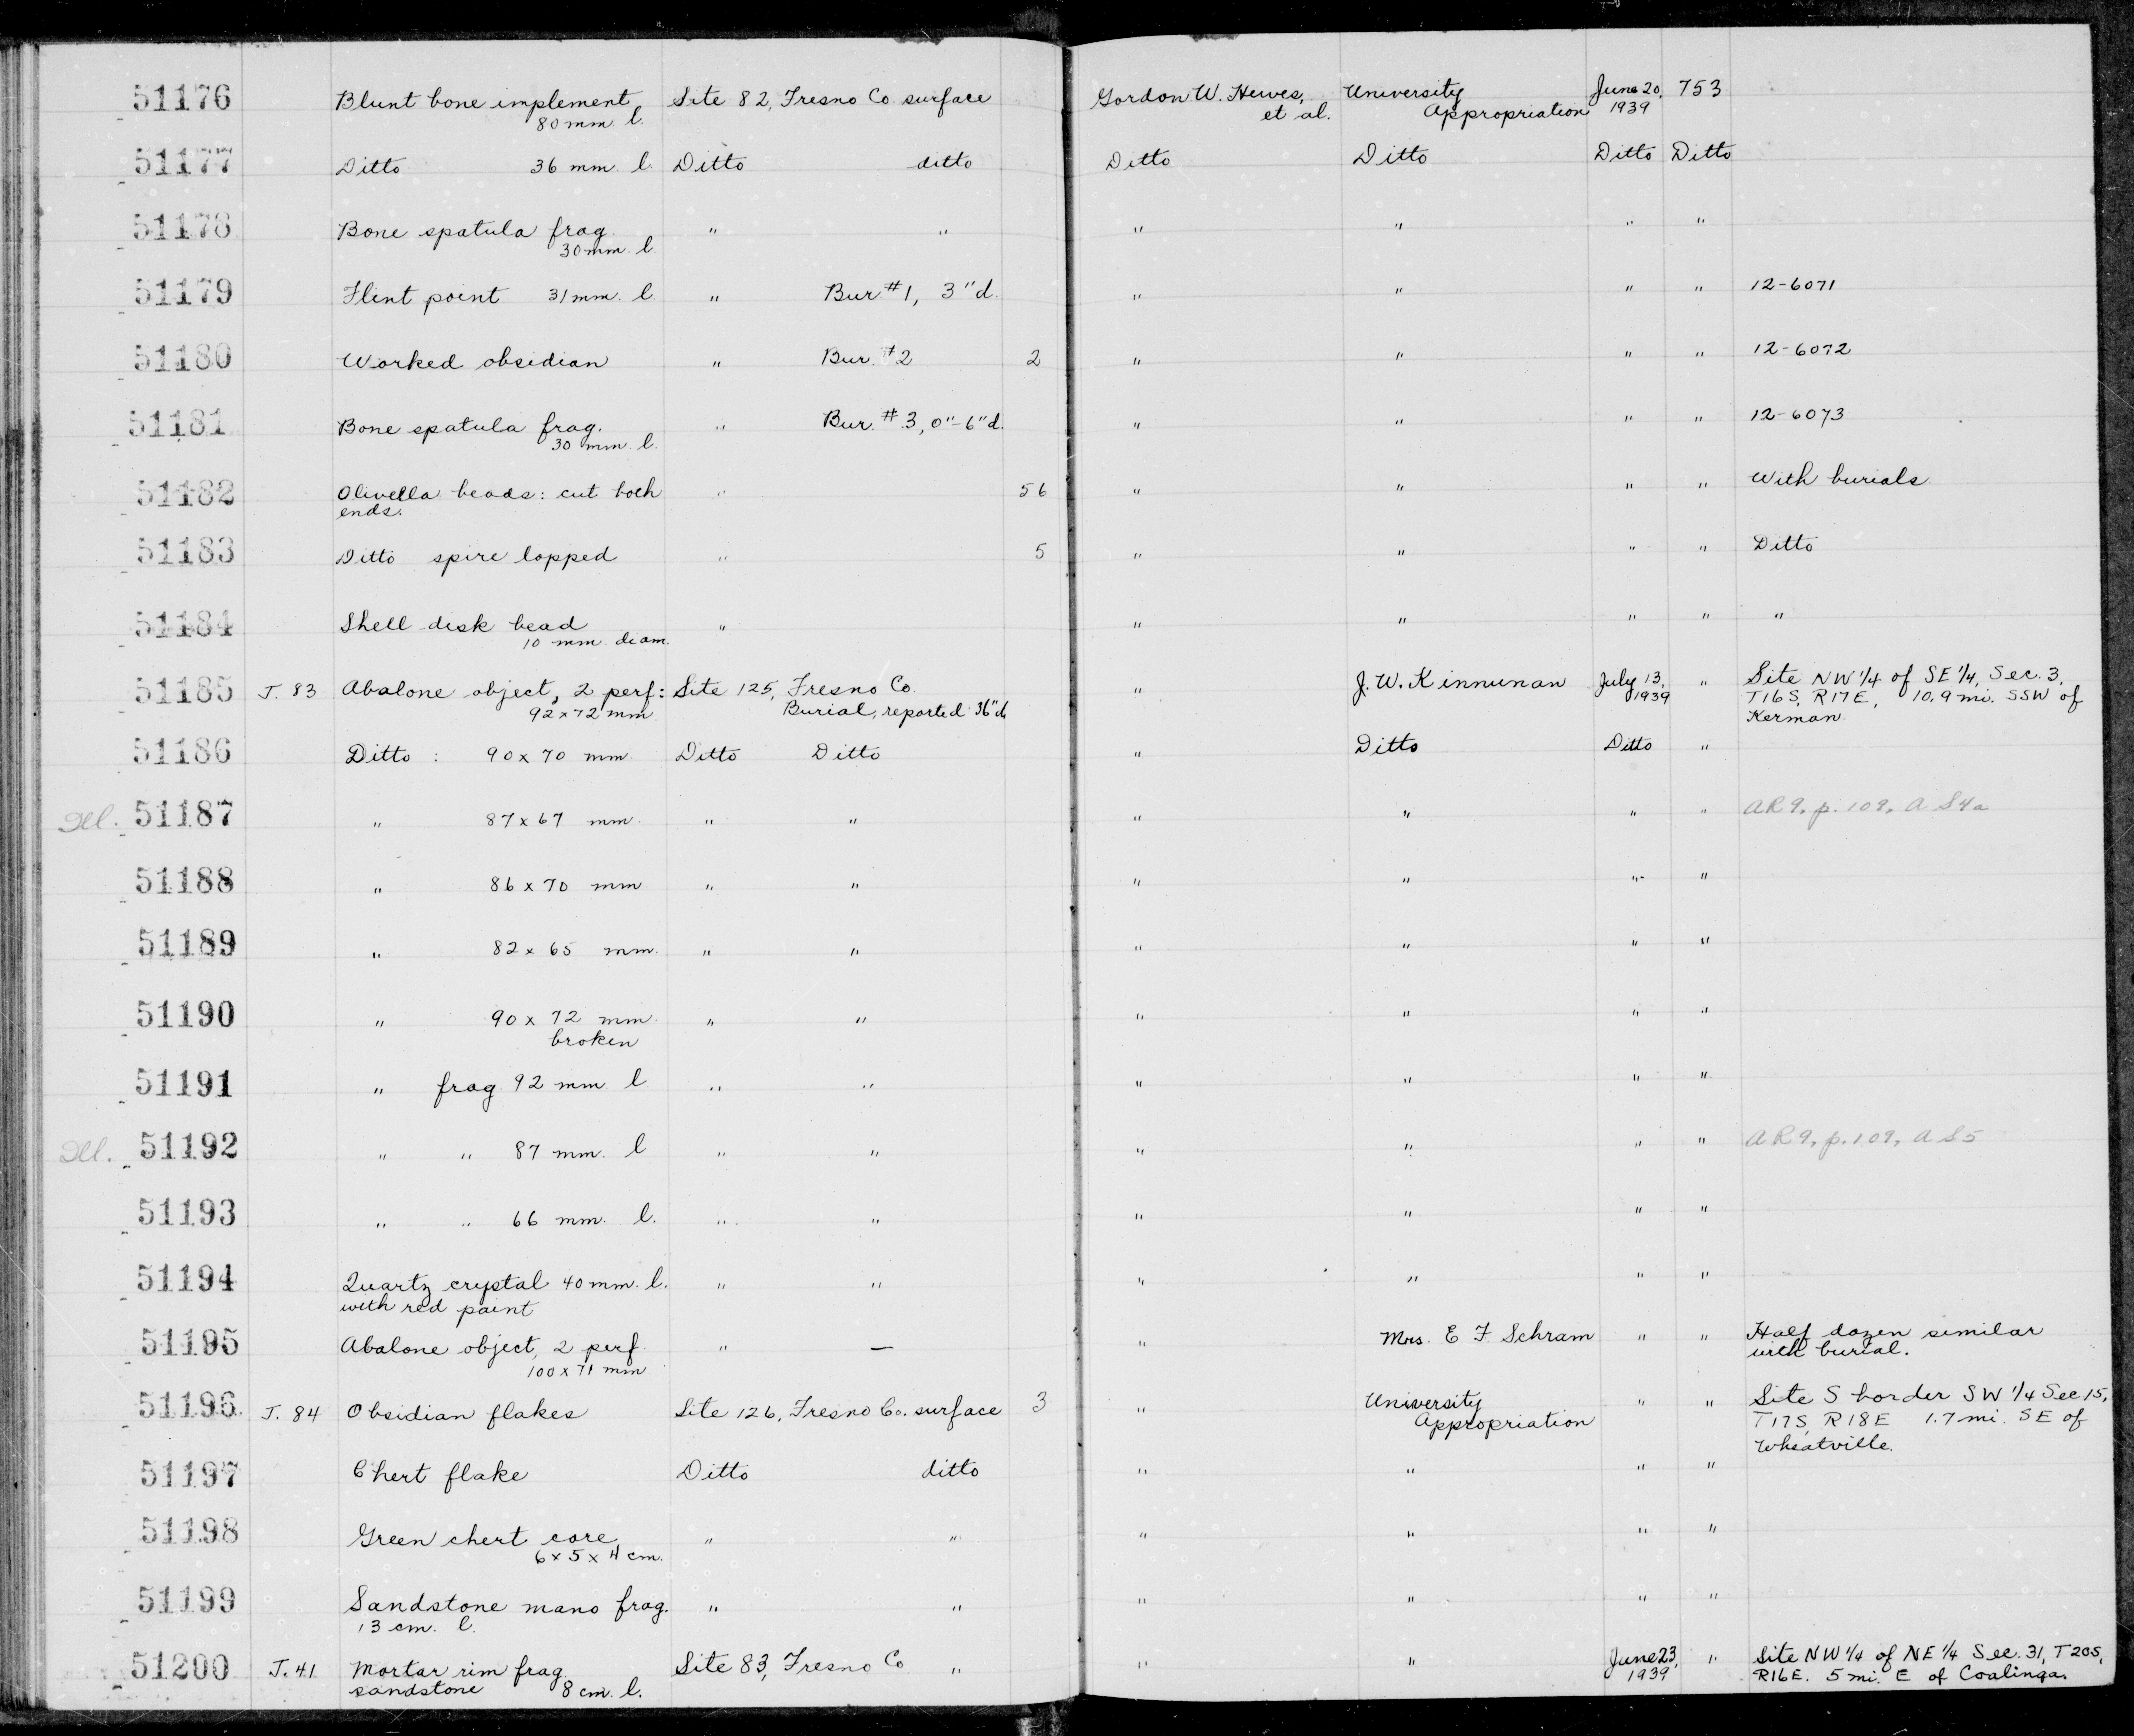 51176 Blunt bone implement Site 82, Fresno Co. surface Gordon W. Hewes, University June 20, 753
80 mm. l. et al. Appropriation 1939
51177 Ditto 36 mm. l. Ditto ditto Ditto Ditto Ditto Ditto
51178 Bone spatula frag. " " " " " "
30 mm. l.
51179 Flint point 31 mm. l. " Bur #1, 3" d. " " " " 12-6071
51180 Worked obsidian " Bur. #2 2 " " " " 12-6072
51181 Bone spatula frag. " Bur. #3, 0"-6" d. " " " " 12-6073
30 mm. l.
51182 Olivella beads: cut both " 56 " " " " With burials
ends.
51183 Ditto spire lopped " 5 " " " " Ditto
51184 Shell disk bead " " " " " "
10 mm. diam.
51185 J. 83 Abalone object, 2 perf: Site 125, Fresno Co. " J. W. Kinnunan July 13, " Site NW 1/4 of SE 1/4, Sec. 3,
92 x 72 mm. Burial, reported 36" d. 1939 T16S, R17E, 10.9 mi. SSW of
Kerman.
51186 Ditto : 90 x 70 mm. Ditto Ditto " Ditto Ditto "
Ill. 51187 " 87 x 67 mm. " " " " " " AR 9, p. 109, A S4a
51188 " 86 x 70 mm. " " " " " "
51189 " 82 x 65 mm. " " " " " "
51190 " 90 x 72 mm. " " " " " "
broken
51191 " frag. 92 mm. l " " " " " "
Ill. 51192 " " 87 mm. l " " " " " " AR 9, p. 109, A S5
51193 " " 66 mm. l. " " " " " "
51194 Quartz crystal 40 mm. l. " " " " " "
with red paint
51195 Abalone object, 2 perf. " — " Mrs. E F Schram " " Half dozen similar
100 x 71 mm with burial.
51196 J. 84 Obsidian flakes Site 126, Fresno Co. surface 3 " University " " Site S border SW 1/4 Sec 15,
Appropriation T17S, R18E 1.7 mi. SE of
Wheatville.
51197 Chert flake Ditto ditto " " " "
51198 Green chert core " " " " " "
6 x 5 x 4 cm.
51199 Sandstone mano frag. " " " " " "
13 cm. l.
51200 J. 41 Mortar rim frag. Site 83, Fresno Co " " " June 23, " Site NW 1/4 of NE 1/4 Sec. 31, T20S,
sandstone 8 cm. l. 1939 R16E. 5 mi. E of Coalinga.